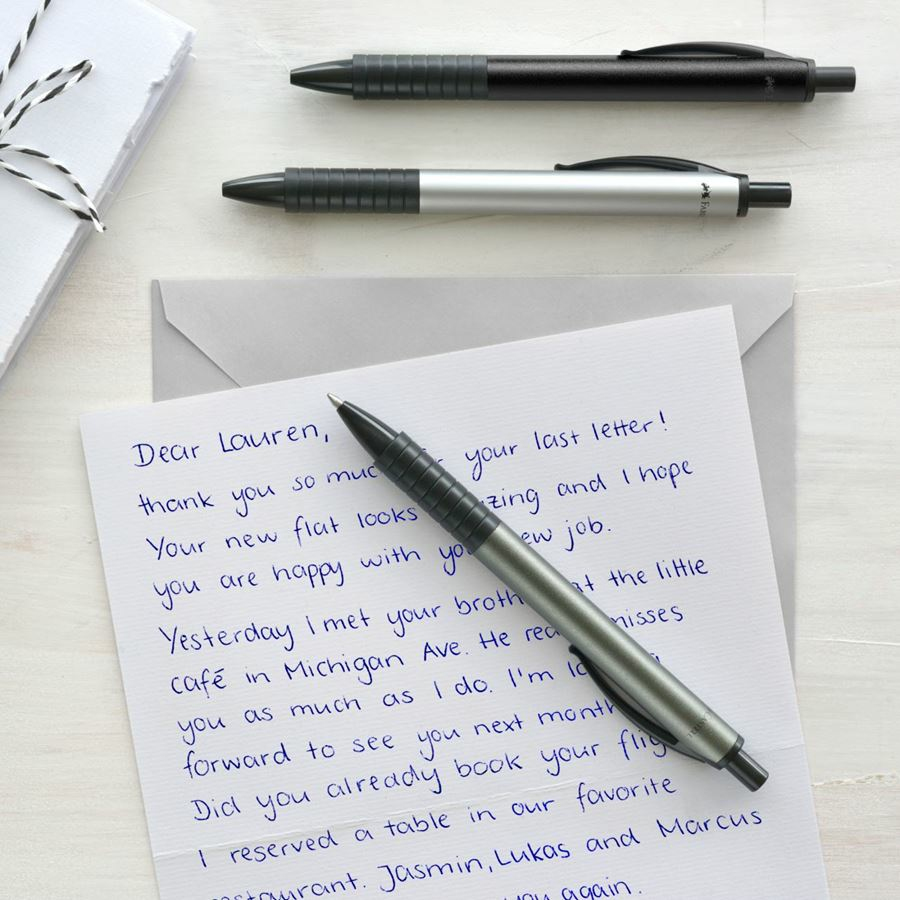 FAB
Dear Lauren,
thank you so muc your last letter!
Your new flat looks zing and I hope
you are happy with yo ew job.
Yesterday I met your broth at the little
café in Michigan Ave. He rea misses
you as much as I do. I'm lo
forward to see you next month
Did you already book your flig
I reserved a table in our favorite
restaurant. Jasmin, Lukas and Marcus
you again.